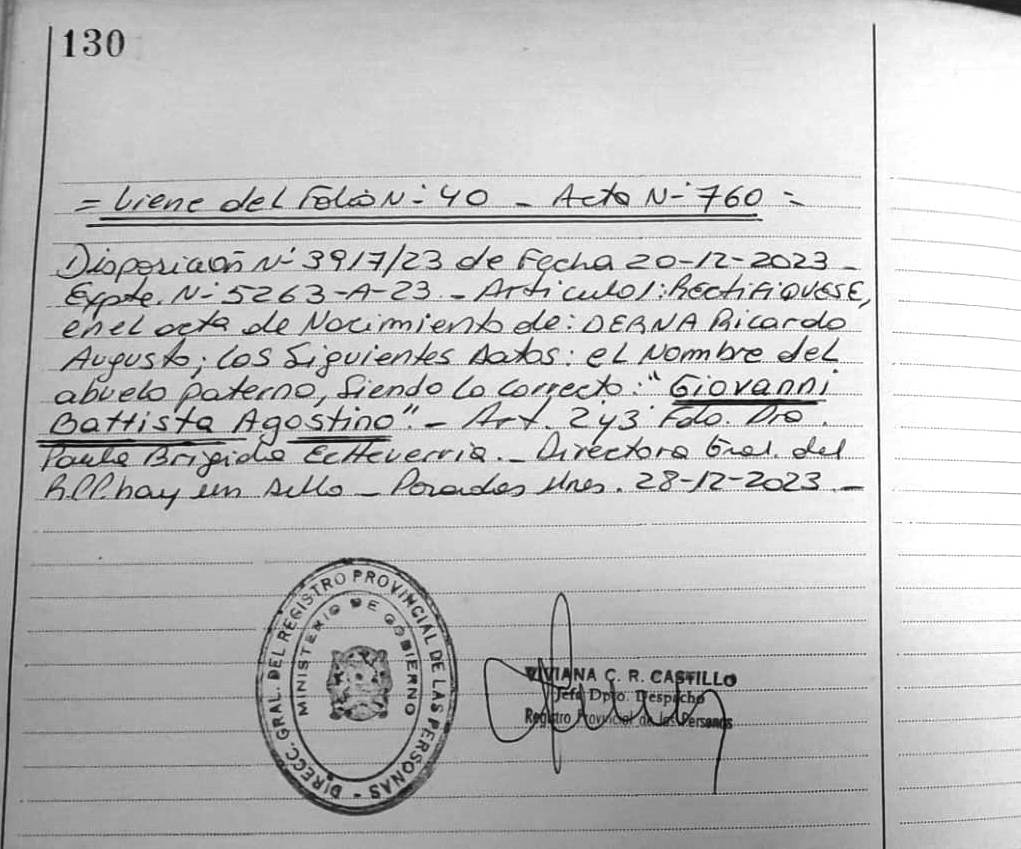 130
= Viene del Folio N- 40 - Acta N- 760 =
Disposición N- 3917/23 de Fecha 20-12-2023 -
Expte. N- 5263-A-23 - Articulo 1: RECTIFIQUESE,
en el acta de Nacimiento de: DERNA Ricardo
Augusto; los Siguientes Datos: el Nombre del
abuelo paterno, Siendo lo correcto: "Giovanni
Battista Agostino". - Art. 2 y 3 Fdo. Dra.
Paula Brigida Echeverria. - Directora Gral. del
R.P.P. hay un Sello - Posadas Mnes. 28-12-2023 -
DIRECC. GRAL. DEL REGISTRO PROVINCIAL DE LAS PERSONAS -
MINISTERIO DE GOBIERNO
VIVIANA C. R. CASTILLO
Jefe Dpto. Despacho
Registro Provincial de las Personas